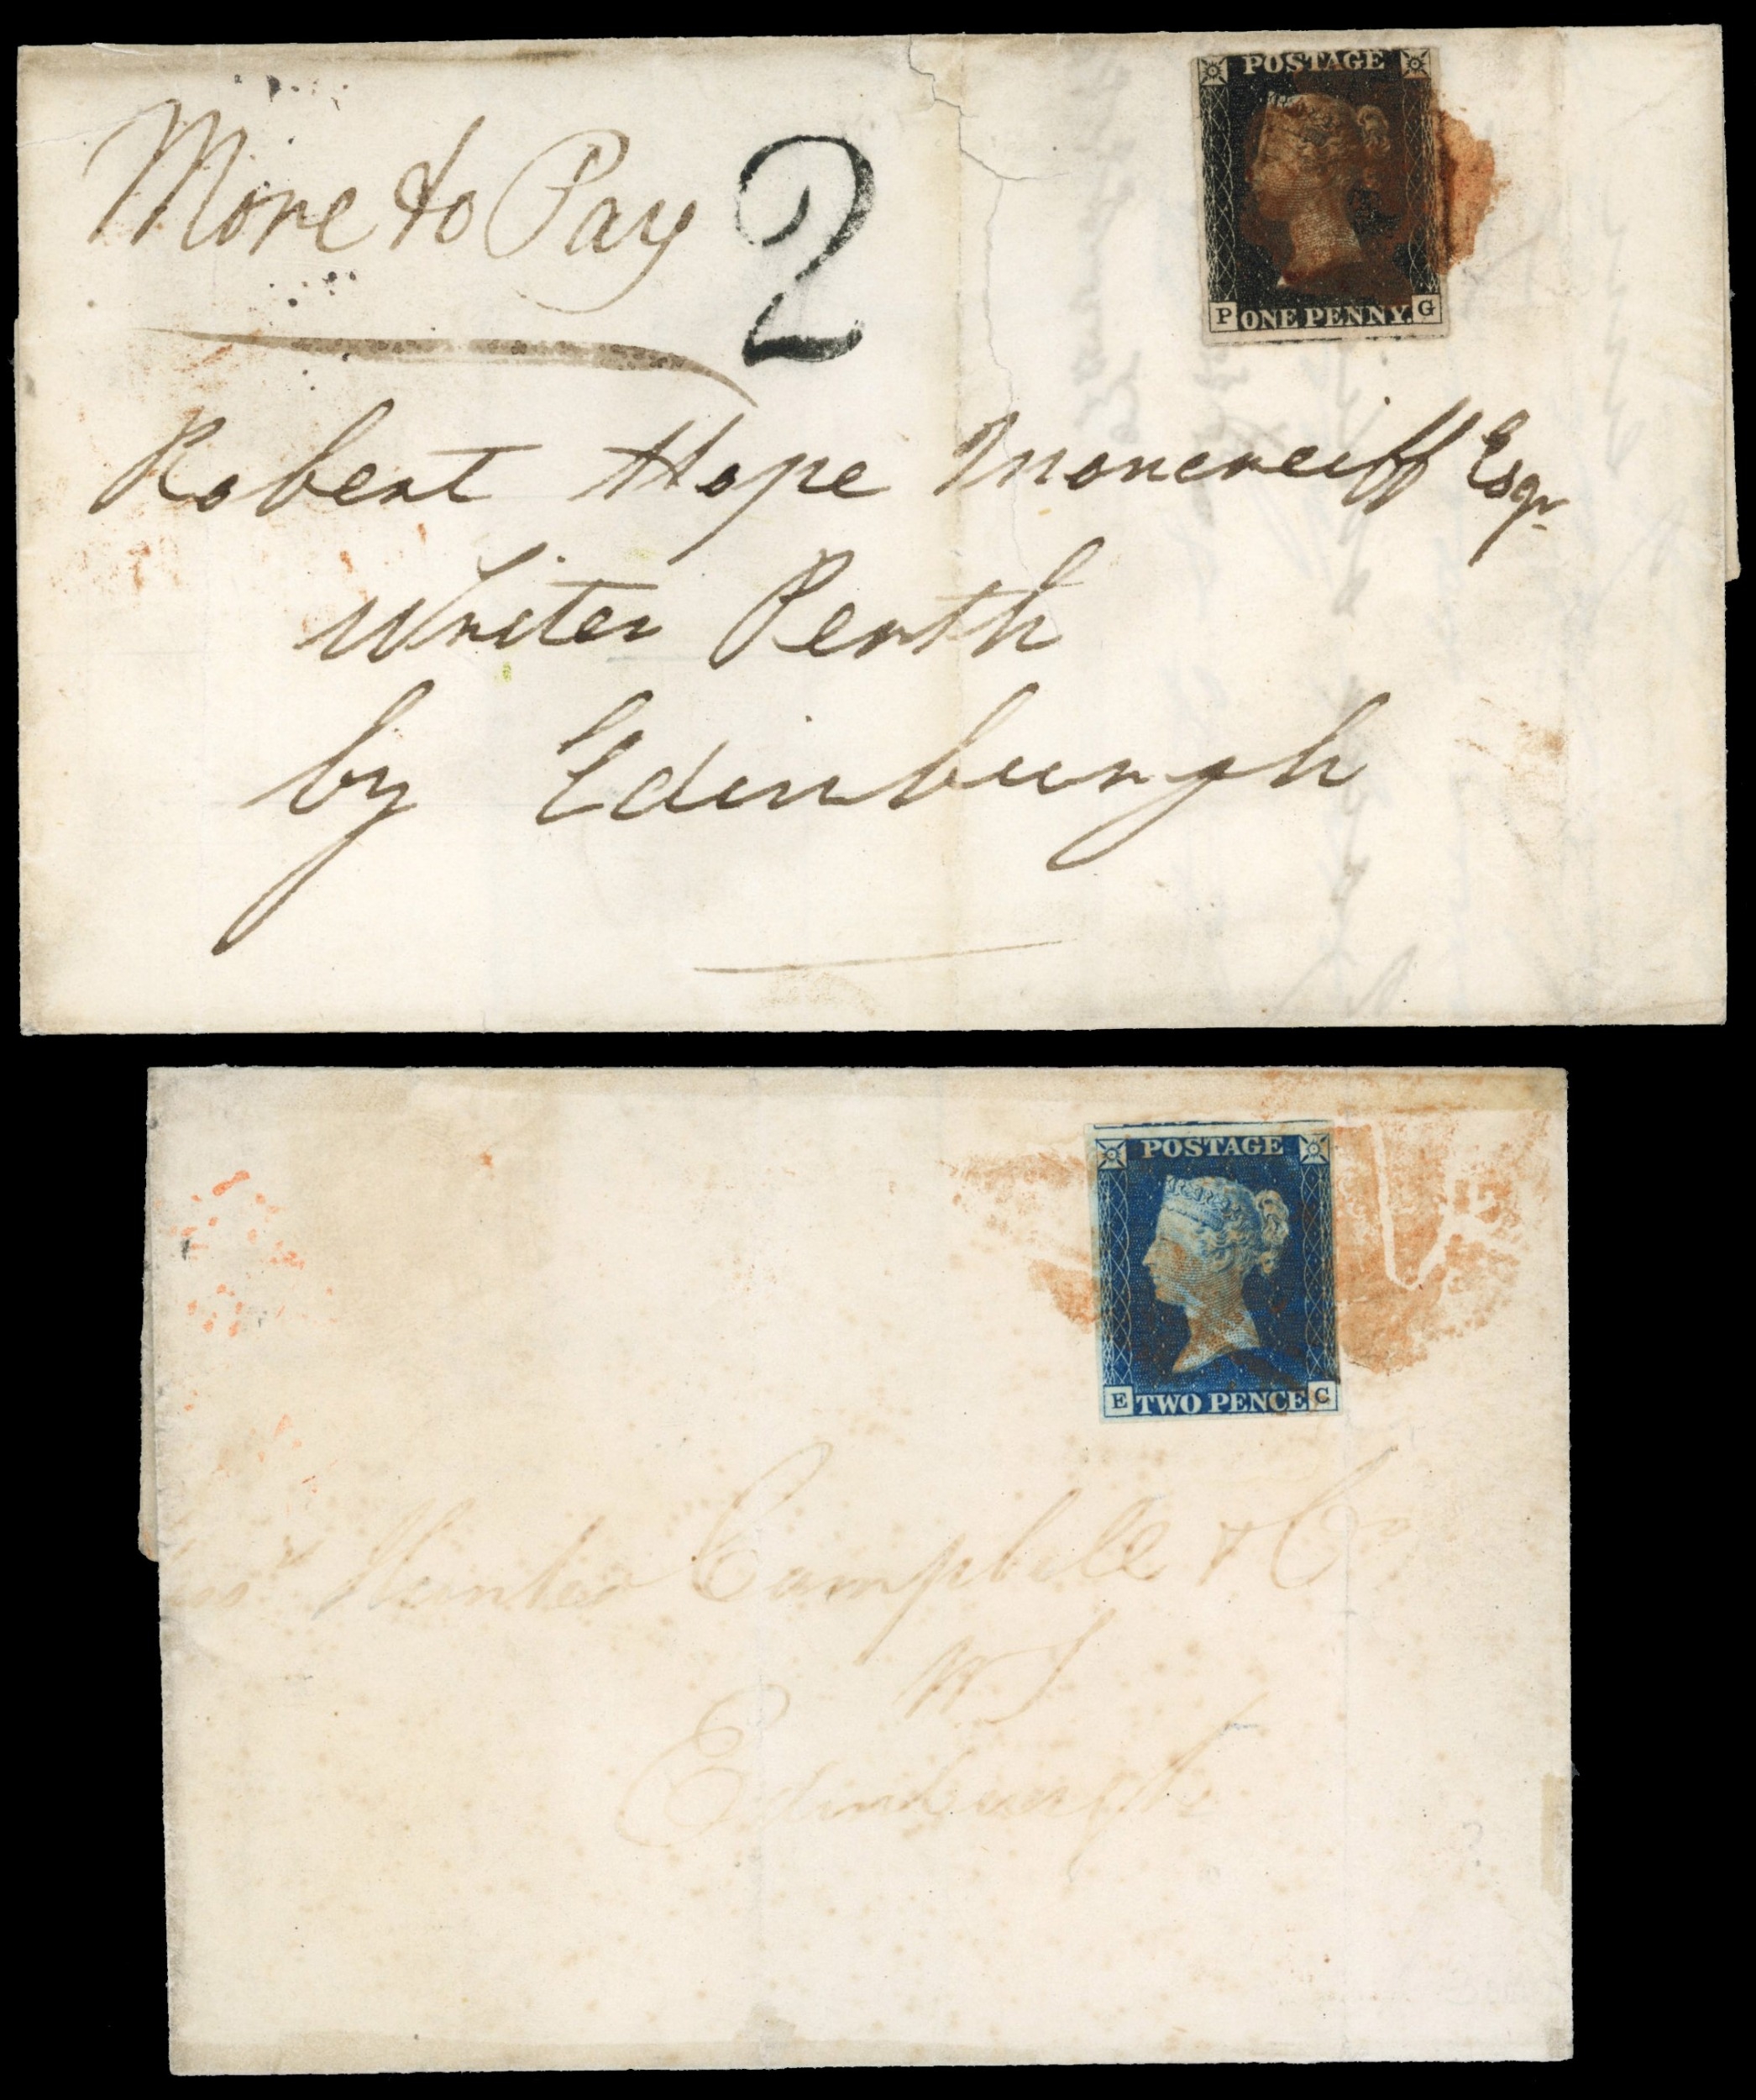 POSTAGE
More to Pay 2
P ONE PENNY. G
Robert Hope Moncreiff Esqr
Writer Perth
by Edinburgh
POSTAGE
E TWO PENCE C
Hunter Campbell & Co
W S
Edinburgh